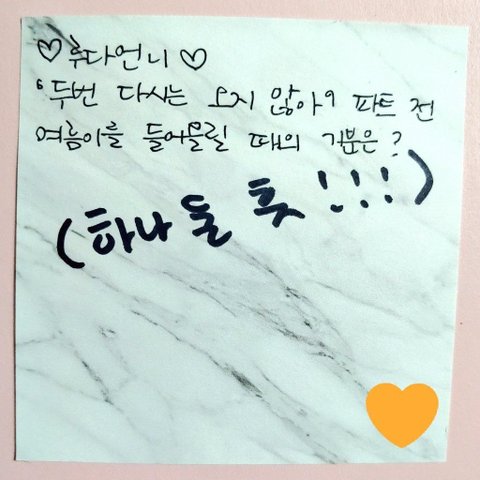 ♡루다언니♡
'두번 다시는 오지 않아' 파트 전
여름이를 들어올릴 때의 기분은?
(하나 둘 훗!!!)